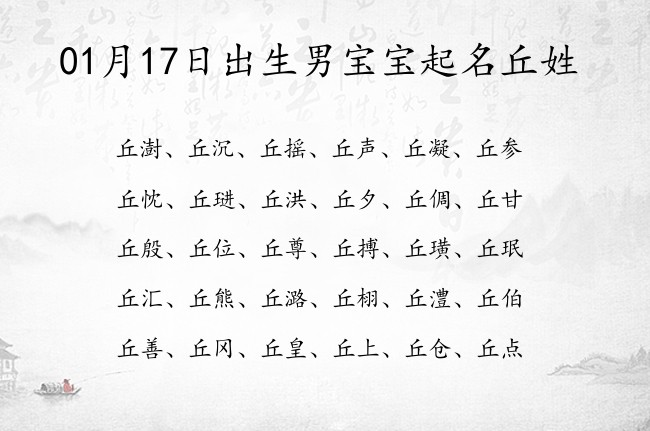 01月17日出生男宝宝起名丘姓
丘澍、丘沉、丘摇、丘声、丘凝、丘参
丘忱、丘琎、丘洪、丘夕、丘倜、丘甘
丘殷、丘位、丘尊、丘搏、丘璜、丘珉
丘汇、丘熊、丘潞、丘栩、丘澧、丘伯
丘善、丘冈、丘皇、丘上、丘仓、丘点